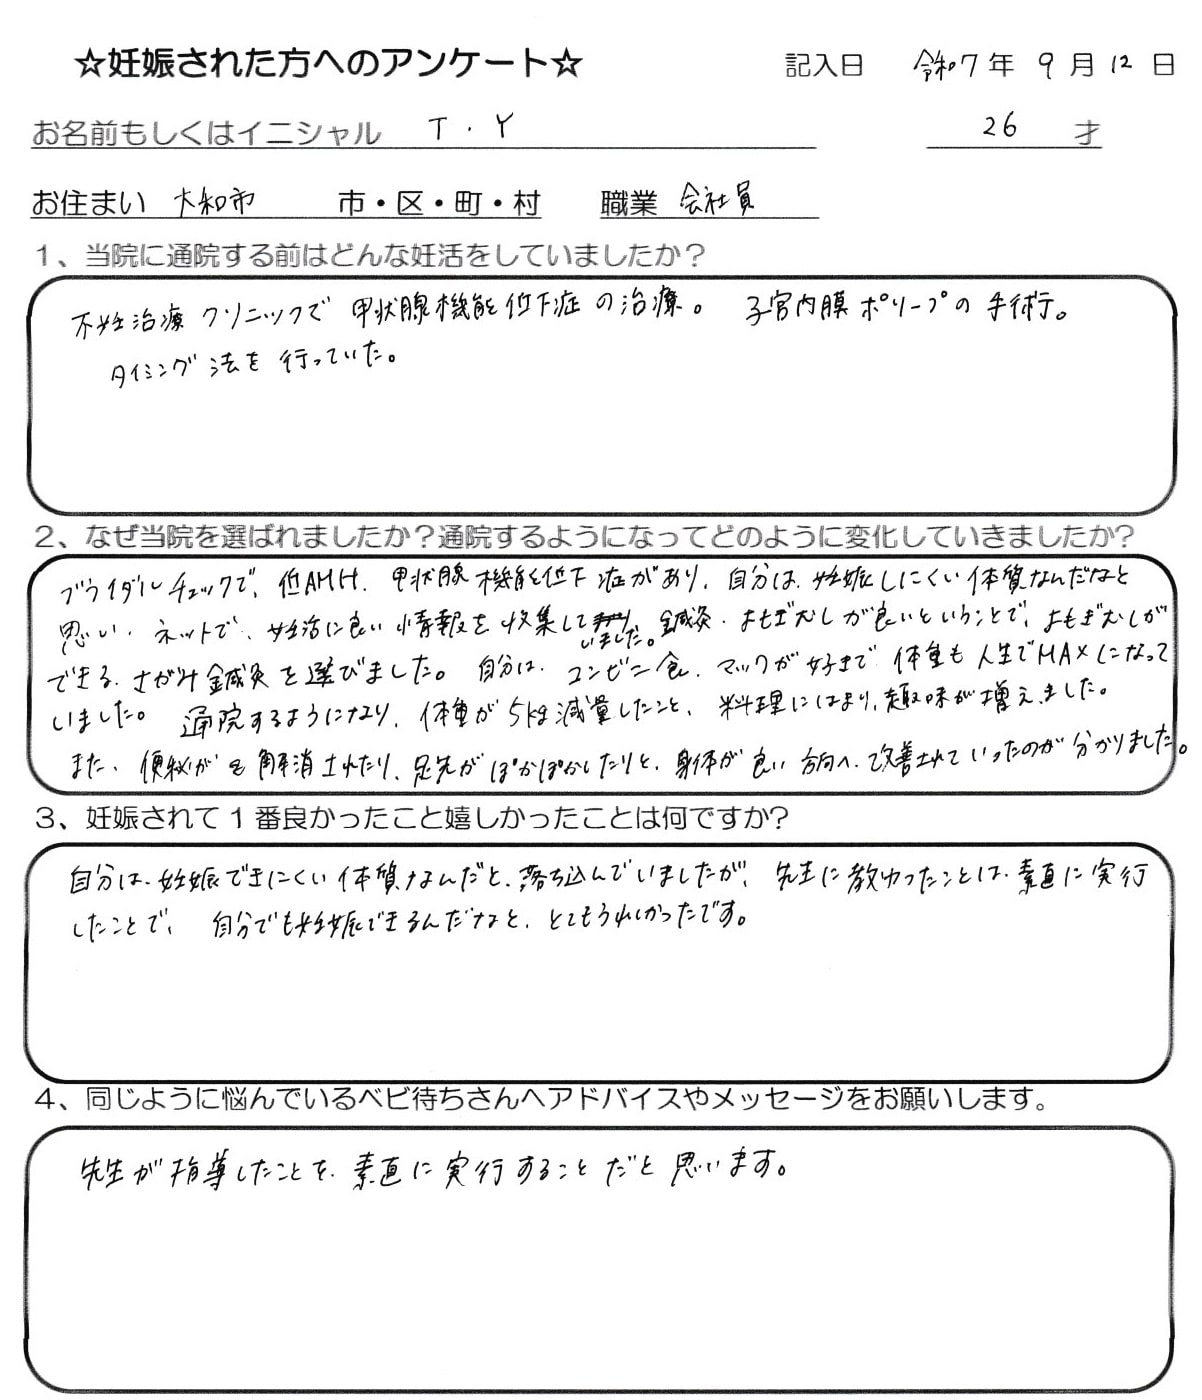 ☆妊娠された方へのアンケート☆ 記入日 令和7年 9月 12日
お名前もしくはイニシャル T.Y 26 才
お住まい 大和市 市・区・町・村 職業 会社員
1、当院に通院する前はどんな妊活をしていましたか？
不妊治療クリニックで 甲状腺機能低下症の治療。 子宮内膜ポリープの手術。
タイミング法を行っていた。
2、なぜ当院を選ばれましたか？通院するようになってどのように変化していきましたか?
ブライダルチェックで、低AMH、甲状腺機能低下症があり、自分は、妊娠しにくい体質なんだなと
思い、ネットで、妊活に良い情報を収集していました。鍼灸・よもぎむしが良いということで、よもぎむしが
できる、さがみ鍼灸を選びました。自分は、コンビニ食、マックが好きで 体重も人生でMAXになって
いました。通院するようになり、体重が5kg減量したこと、料理にはまり、趣味が増えました。
また、便秘が解消されたり、足先がぽかぽかしたりと、身体が良い方向へ、改善されていったのが分かりました。
3、妊娠されて1番良かったこと嬉しかったことは何ですか?
自分は、妊娠できにくい体質なんだと、落ち込んでいましたが、先生に教わったことは、素直に実行
したことで、自分でも妊娠できるんだなと、とてもうれしかったです。
4、同じように悩んでいるベビ待ちさんへアドバイスやメッセージをお願いします。
先生が指導したことを、素直に実行することだと思います。